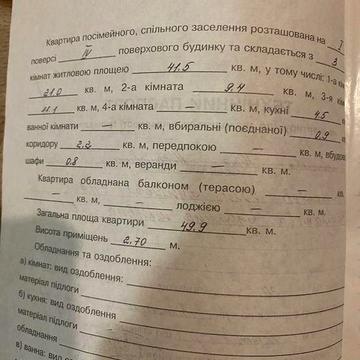 Квартира посімейного, спільного заселення розташована на I
поверсі IV поверхового будинку та складається з 3
кімнат житловою площею 41.5 кв. м, у тому числі: 1-а
21.0 кв. м, 2-а кімната 9.4 кв. м, 3-я
11.1 кв. м, 4-а кімната — кв. м, кухні 4.5
ванної кімнати — кв. м, вбиральні (поєднаної) 0.9
коридору 2.2 кв. м, передпокою — кв. м, вбудов
шафи 0.8 кв. м, веранди — кв. м.
Квартира обладнана балконом (терасою) —
— кв. м, — лоджією — кв. м.
Загальна площа квартири 49.9 кв. м.
Висота приміщень 2.70 м.
Обладнання та оздоблення:
а) кімнат: вид оздоблення
матеріал підлоги
б) кухня: вид оздоблення
матеріал підлоги
обладнання
в) ванна: вид озд